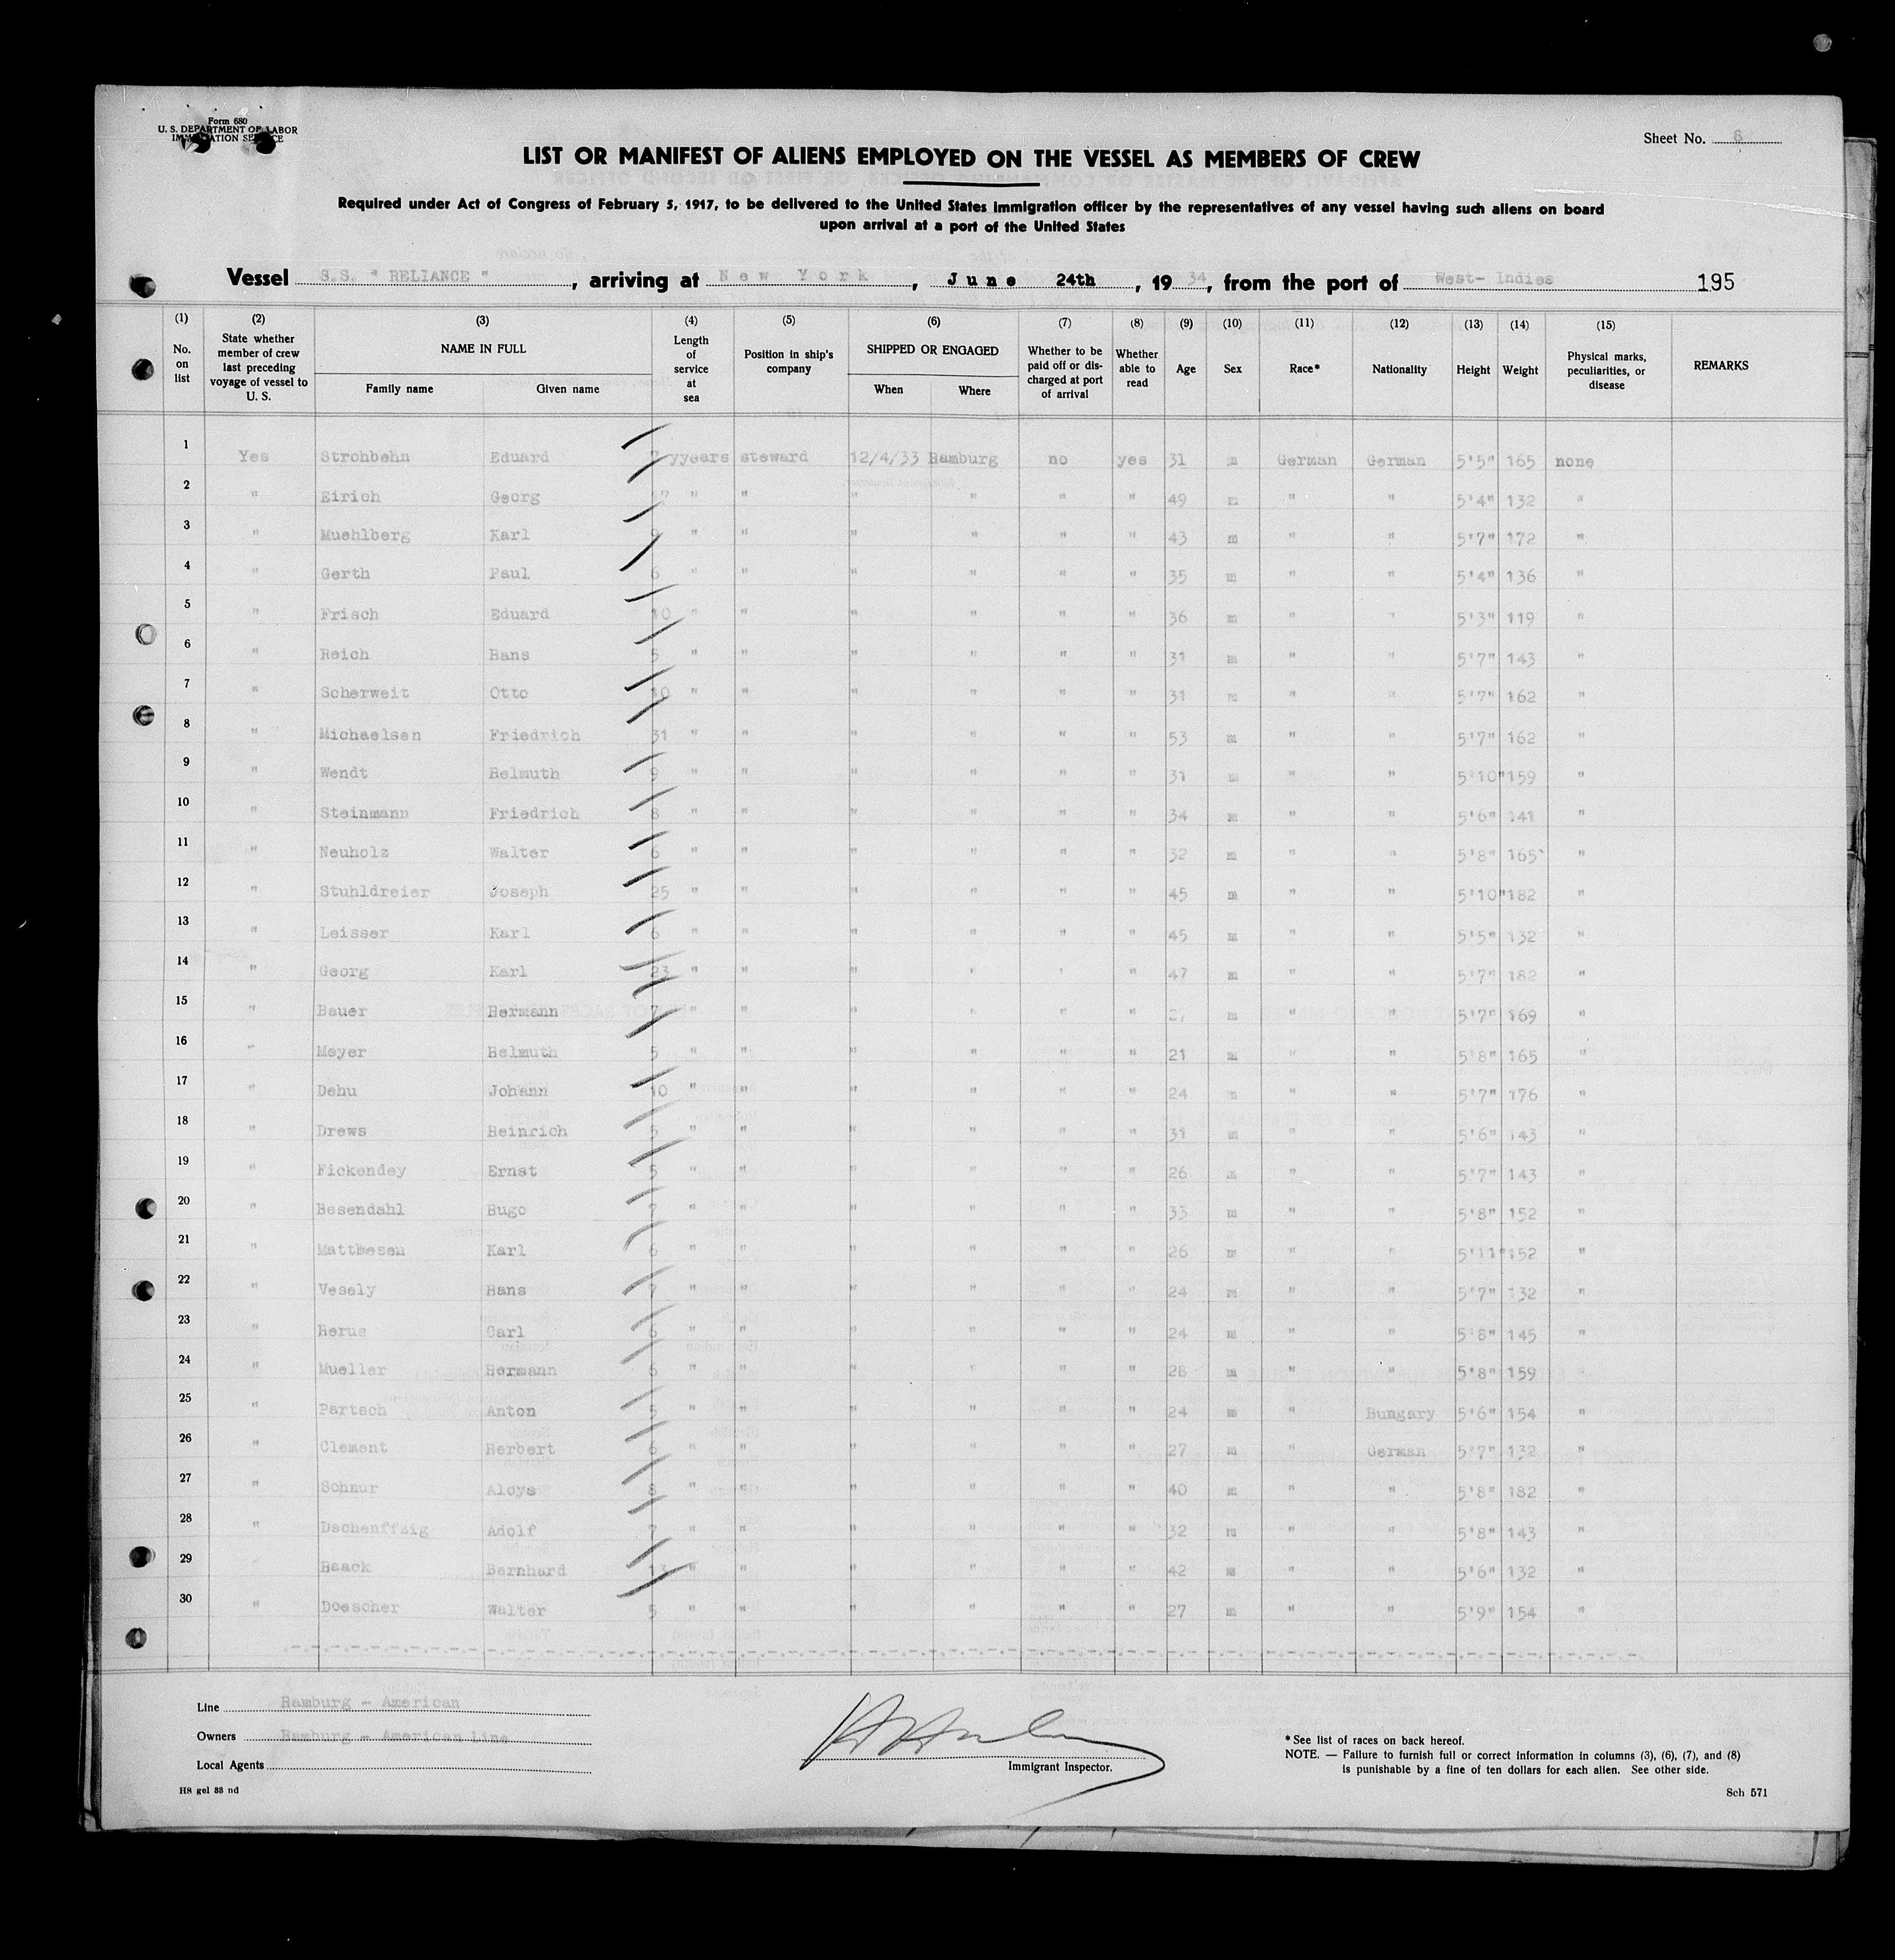 Form 680
U. S. DEPARTMENT OF LABOR
IMMIGRATION SERVICE
Sheet No. 8
LIST OR MANIFEST OF ALIENS EMPLOYED ON THE VESSEL AS MEMBERS OF CREW
Required under Act of Congress of February 5, 1917, to be delivered to the United States Immigration officer by the representatives of any vessel having such aliens on board
upon arrival at a port of the United States
Vessel S.S. " RELIANCE ", arriving at New York, June 24th, 1934, from the port of West- Indies 195
(1) No. on list (2) State whether member of crew last preceding voyage of vessel to U. S. (3) NAME IN FULL Family name Given name (4) Length of service at sea (5) Position in ship's company (6) SHIPPED OR ENGAGED When Where (7) Whether to be paid off or discharged at port of arrival (8) Whether able to read (9) Age (10) Sex (11) Race* (12) Nationality (13) Height (14) Weight (15) Physical marks, peculiarities, or disease REMARKS
1 Yes Strohbehn Eduard yyears steward 12/4/33 Hamburg no yes 31 m German German 5'5" 165 none
2 " Eirich Georg " " " " " " 49 m " " 5'4" 132 "
3 " Muehlberg Karl 9 " " " " " " 43 m " " 5'7" 172 "
4 " Gerth Paul 6 " " " " " " 35 m " " 5'4" 136 "
5 " Frisch Eduard 10 " " " " " " 36 m " " 5'3" 119 "
6 " Reich Hans 5 " " " " " " 31 m " " 5'7" 143 "
7 " Scherweit Otto 10 " " " " " " 31 m " " 5'7" 162 "
8 " Michaelsen Friedrich 31 " " " " " " 53 m " " 5'7" 162 "
9 " Wendt Helmuth 9 " " " " " " 31 m " " 5'10" 159 "
10 " Steinmann Friedrich 8 " " " " " " 34 m " " 5'6" 141 "
11 " Neuholz Walter 6 " " " " " " 32 m " " 5'8" 165 "
12 " Stuhldreier Joseph 25 " " " " " " 45 m " " 5'10" 182 "
13 " Leisser Karl 6 " " " " " " 45 m " " 5'5" 132 "
14 " Georg Karl 23 " " " " " " 47 m " " 5'7" 182 "
15 " Bauer Hermann 7 " " " " " " m " " 5'7" 169 "
16 " Meyer Helmuth 5 " " " " " " 21 m " " 5'8" 165 "
17 " Dehu Johann 10 " " " " " " 24 m " " 5'7" 176 "
18 " Drews Heinrich 5 " " " " " " 31 m " " 5'6" 143 "
19 " Fickendey Ernst 5 " " " " " " 26 m " " 5'7" 143 "
20 " Besendahl Hugo 7 " " " " " " 33 m " " 5'8" 152 "
21 " Matthesen Karl 6 " " " " " " 26 m " " 5'11" 152 "
22 " Vesely Hans 7 " " " " " " 24 m " " 5'7" 132 "
23 " Herus Carl 6 " " " " " " 24 m " " 5'8" 145 "
24 " Mueller Hermann 6 " " " " " " 28 m " " 5'8" 159 "
25 " Partsch Anton 5 " " " " " " 24 m " Hungary 5'6" 154 "
26 " Clement Herbert 6 " " " " " " 27 m " German 5'7" 132 "
27 " Schnur Aloys 8 " " " " " " 40 m " " 5'8" 182 "
28 " Dschenffzig Adolf 7 " " " " " " 32 m " " 5'8" 143 "
29 " Haack Bernhard 13 " " " " " " 42 m " " 5'6" 132 "
30 " Doescher Walter 5 " " " " " " 27 m " " 5'9" 154 "
Line Hamburg - American
Owners Hamburg - American Line
Local Agents
Immigrant Inspector.
* See list of races on back hereof.
NOTE. — Failure to furnish full or correct information in columns (3), (6), (7), and (8)
is punishable by a fine of ten dollars for each alien. See other side.
H8 gel 88 nd
Sch 571